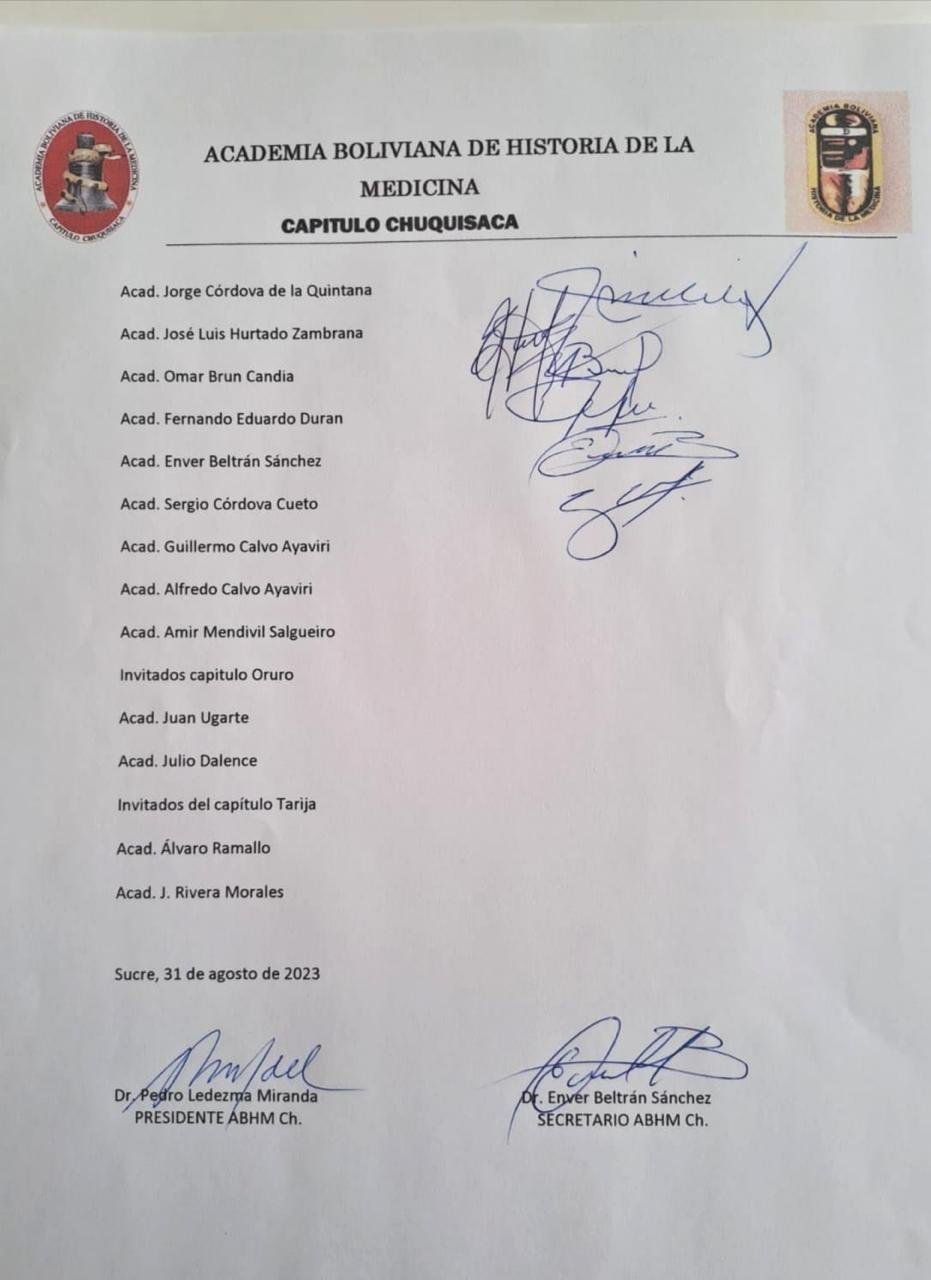 ACADEMIA BOLIVIANA DE HISTORIA DE LA MEDICINA
CAPITULO CHUQUISACA
ACADEMIA BOLIVIANA
HISTORIA DE LA MEDICINA
ACADEMIA BOLIVIANA DE HISTORIA DE LA
MEDICINA
CAPITULO CHUQUISACA
Acad. Jorge Córdova de la Quintana
Acad. José Luis Hurtado Zambrana
Acad. Omar Brun Candia
Acad. Fernando Eduardo Duran
Acad. Enver Beltrán Sánchez
Acad. Sergio Córdova Cueto
Acad. Guillermo Calvo Ayaviri
Acad. Alfredo Calvo Ayaviri
Acad. Amir Mendivil Salgueiro
Invitados capitulo Oruro
Acad. Juan Ugarte
Acad. Julio Dalence
Invitados del capítulo Tarija
Acad. Álvaro Ramallo
Acad. J. Rivera Morales
Sucre, 31 de agosto de 2023
Dr. Pedro Ledezma Miranda
PRESIDENTE ABHM Ch.
Dr. Enver Beltrán Sánchez
SECRETARIO ABHM Ch.